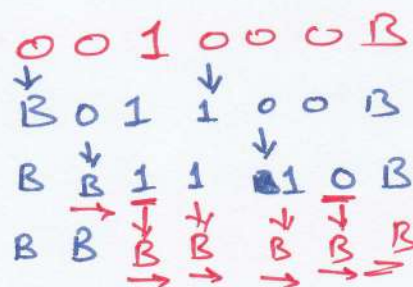 0 0 1 0 0 0 B
B 0 1 1 0 0 B
B B 1 1 1 0 B
B B B B B B B